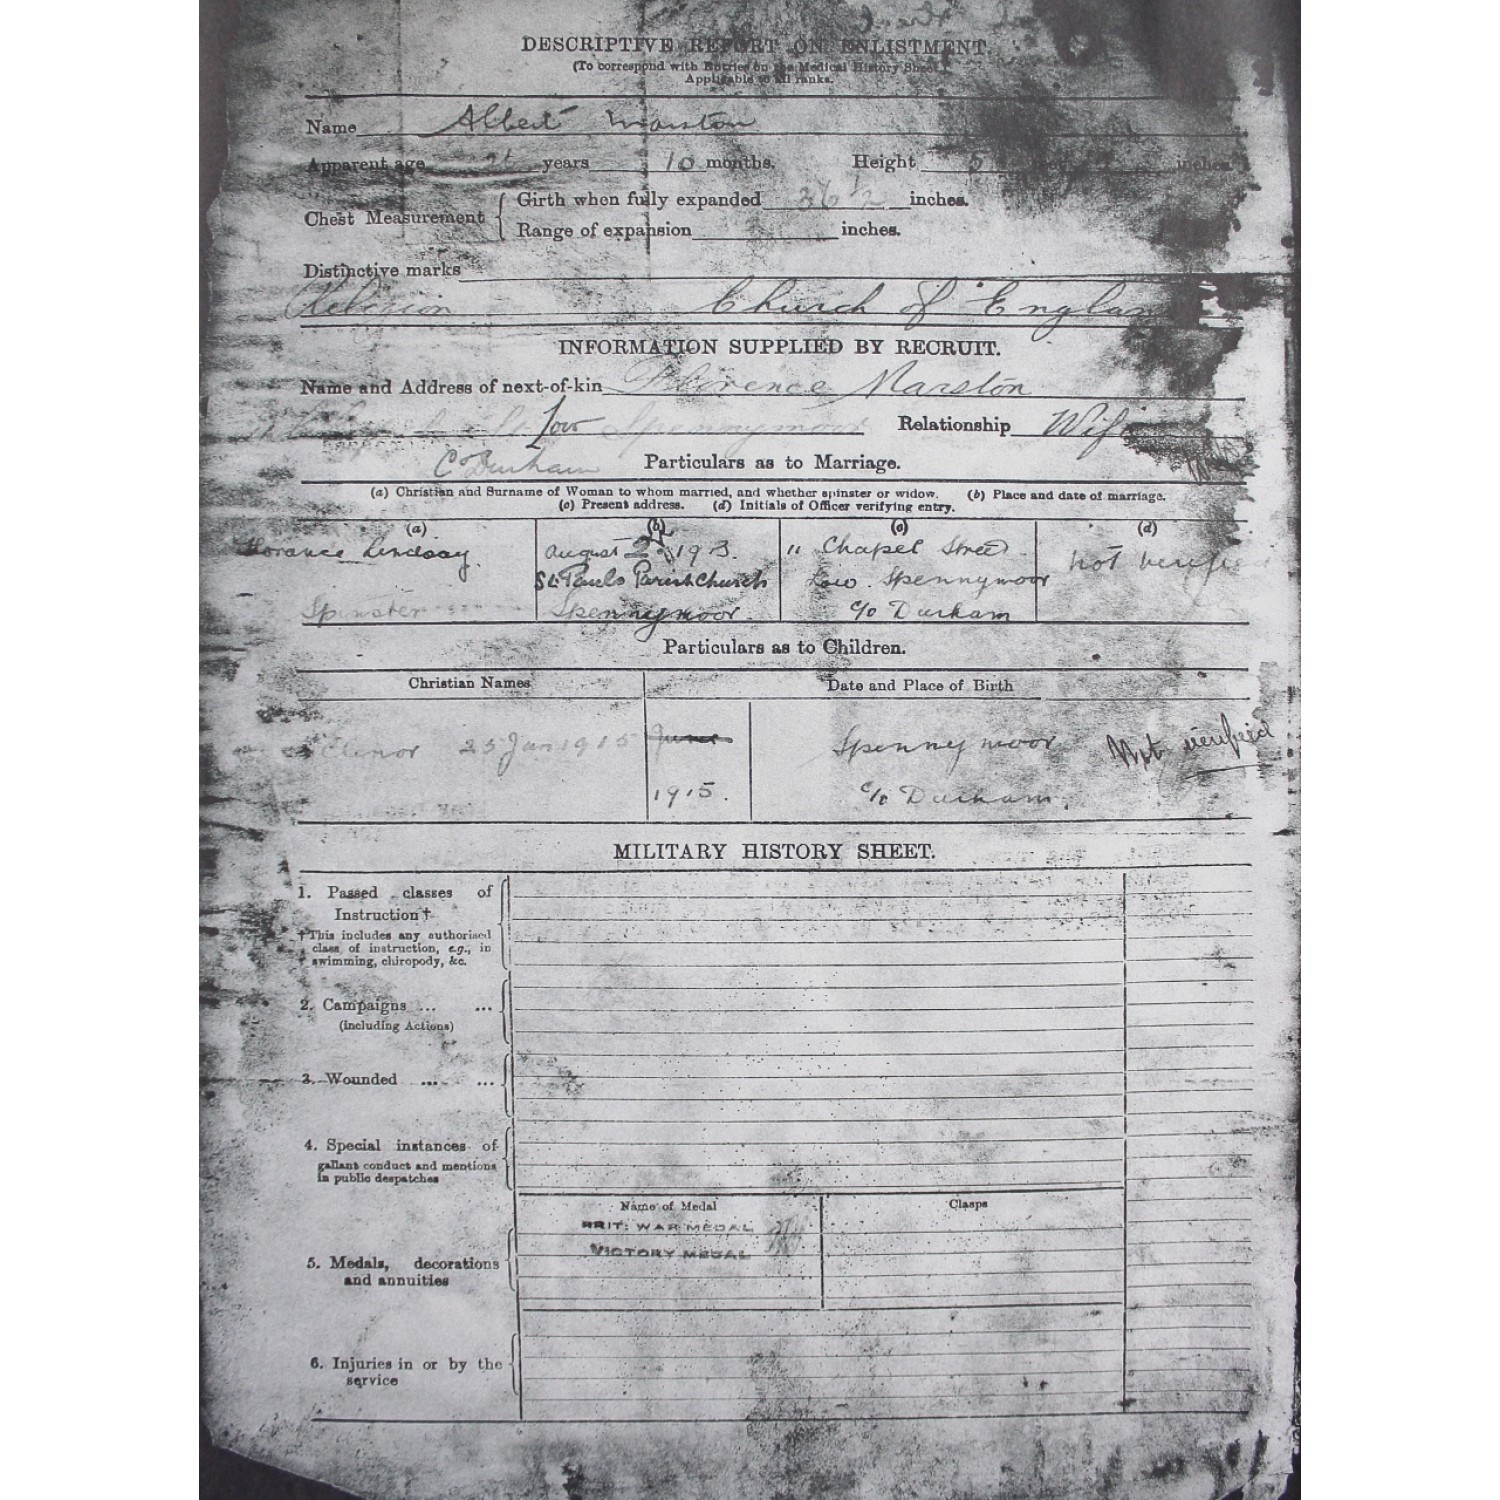 DESCRIPTIVE REPORT ON ENLISTMENT.
(To correspond with Entries on the Medical History Sheet.)
Applicable to all ranks.
Name Albert Marston
Apparent age years 10 months. Height 5 inches.
Chest Measurement { Girth when fully expanded 36 1/2 inches.
Range of expansion inches.
Distinctive marks
Religion Church of England
INFORMATION SUPPLIED BY RECRUIT.
Name and Address of next-of-kin Florence Marston
St Low Spennymoor Relationship Wife
Co Durham Particulars as to Marriage.
(a) Christian and Surname of Woman to whom married, and whether spinster or widow. (b) Place and date of marriage.
(c) Present address. (d) Initials of Officer verifying entry.
(a) (b) (c) (d)
Florance Lindsay. August 2 1913. 11 Chapel Street not verified
St. Pauls Parish Church Low. Spennymoor
Spinster Spennymoor. c/o Durham
Particulars as to Children.
Christian Names Date and Place of Birth
Elenor 25 Jun 1915 June Spennymoor Not verified
1915. c/o Durham.
MILITARY HISTORY SHEET.
1. Passed classes of
Instruction †
†This includes any authorised
class of instruction, e.g., in
swimming, chiropody, &c.
2. Campaigns ... ...
(including Actions)
3. Wounded ... ...
4. Special instances of
gallant conduct and mentions
in public despatches
Name of Medal Clasps
BRIT: WAR MEDAL
VICTORY MEDAL
5. Medals, decorations
and annuities
6. Injuries in or by the
service